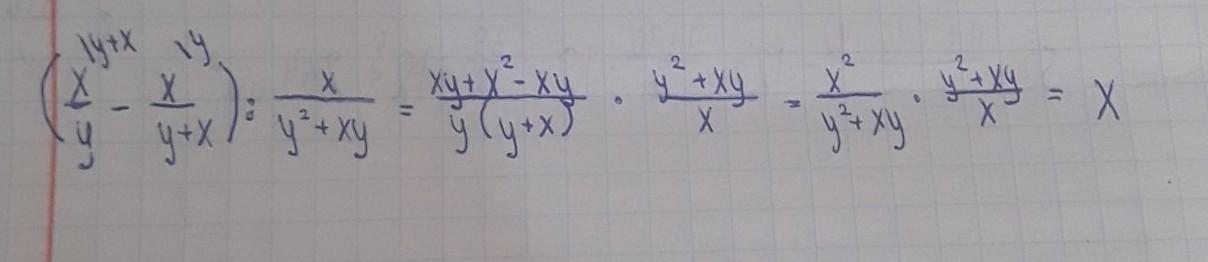 (x/y \y+x - x/(y+x) \y) : x/(y²+xy) = (xy+x²-xy)/(y(y+x)) · (y²+xy)/x = x²/(y²+xy) · (y²+xy)/x = x